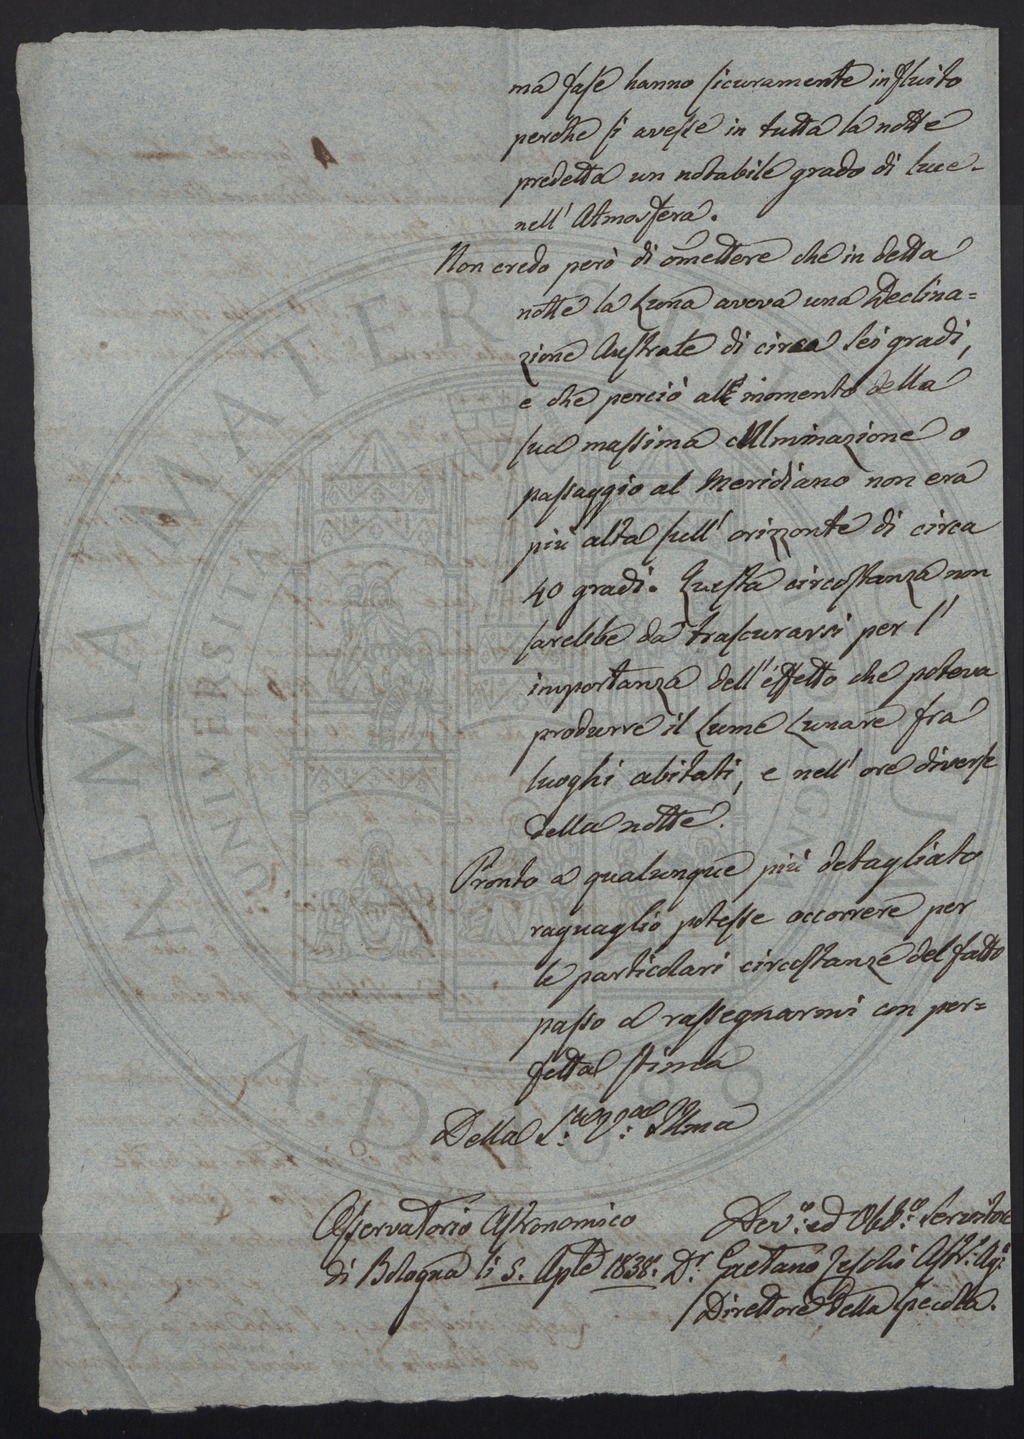 ma fase hanno sicuramente influito
perchè si avesse in tutta la notte
predetta un notabile grado di luce
nell' Atmosfera.
Non credo però di omettere che in detta
notte la Luna aveva una Declina=
zione Australe di circa sei gradi,
e che perciò all momento della
sua massima culminazione o
passaggio al Meridiano non era
più alta sull' orizzonte di circa
40 gradi. Questa circostanza non
sarebbe da trascurarsi per l'
importanza dell' effetto che poteva
produrre il Lume Lunare fra
luoghi abitati, e nell' ore diverse
della notte.
Pronto a qualunque più detagliato
raguaglio potesse occorrere per
le particolari circostanze del fatto
passo a rassegnarmi con per=
fetta stima
Della
Osservatorio Astronomico
di Bologna li 5. Aple 1838.
Dev.o ed Obb.o Servitore
Dr. Gaetano Ceschi Astr. Ag.
Direttore della Specola.
ALMA MATER STUDIORUM
UNIVERSITA DI BOLOGNA
A.D. 1088